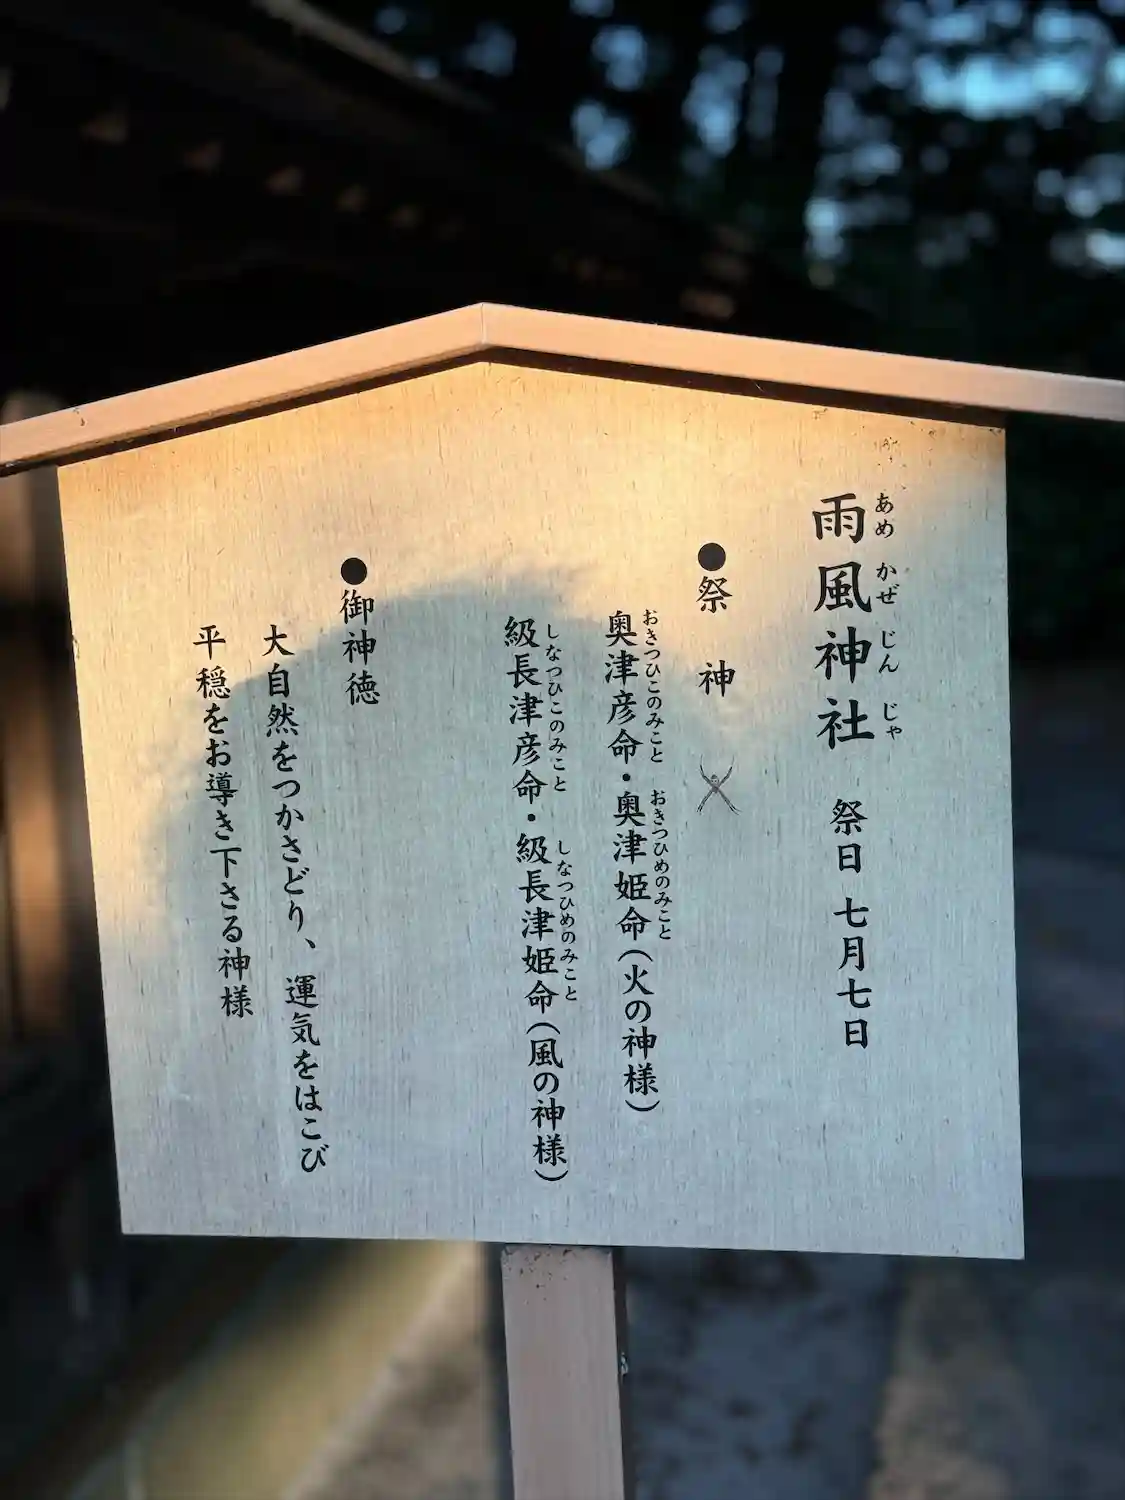 雨風神社 祭日 七月七日
あめ かぜ じん じゃ
●祭 神
奥津彦命・奥津姫命(火の神様)
おきつひこのみこと おきつひめのみこと
級長津彦命・級長津姫命(風の神様)
しなつひこのみこと しなつひめのみこと
●御神徳
大自然をつかさどり、運気をはこび
平穏をお導き下さる神様